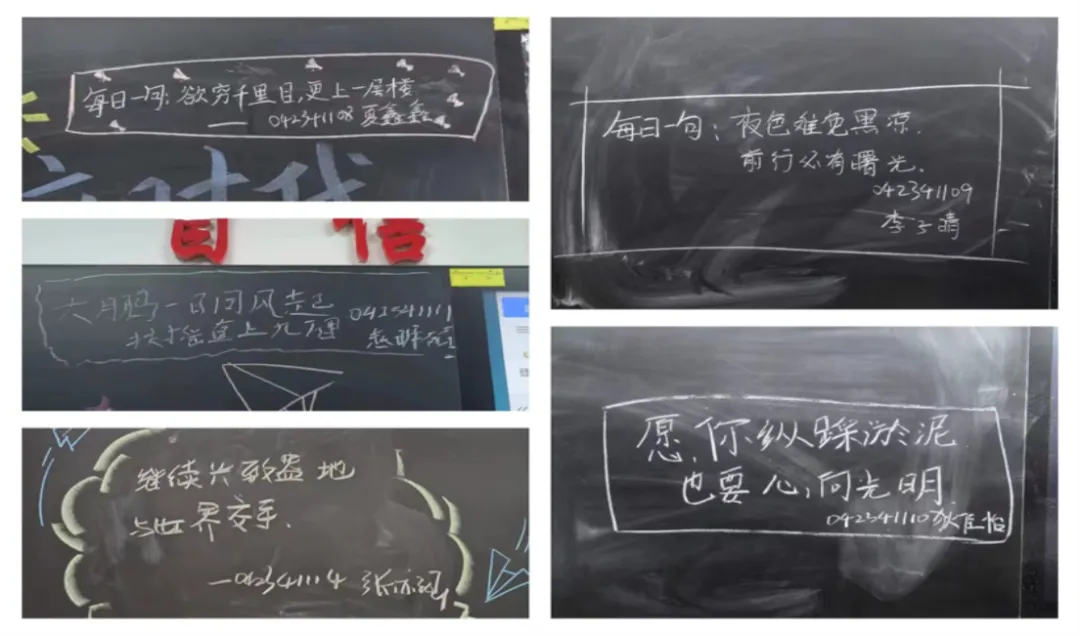 每日一句：欲穷千里目，更上一层楼
—— 042341108 夏鑫鑫
时代
自信
六月鹏一日同风起
扶摇直上九万里
继续兴致盎地
与世界交手．
—042341114
每日一句：夜色难免黑凉．
前行必有曙光．
042341109
李子晴
愿，你纵踩淤泥
也要心，向光明
042341110 狄佳怡